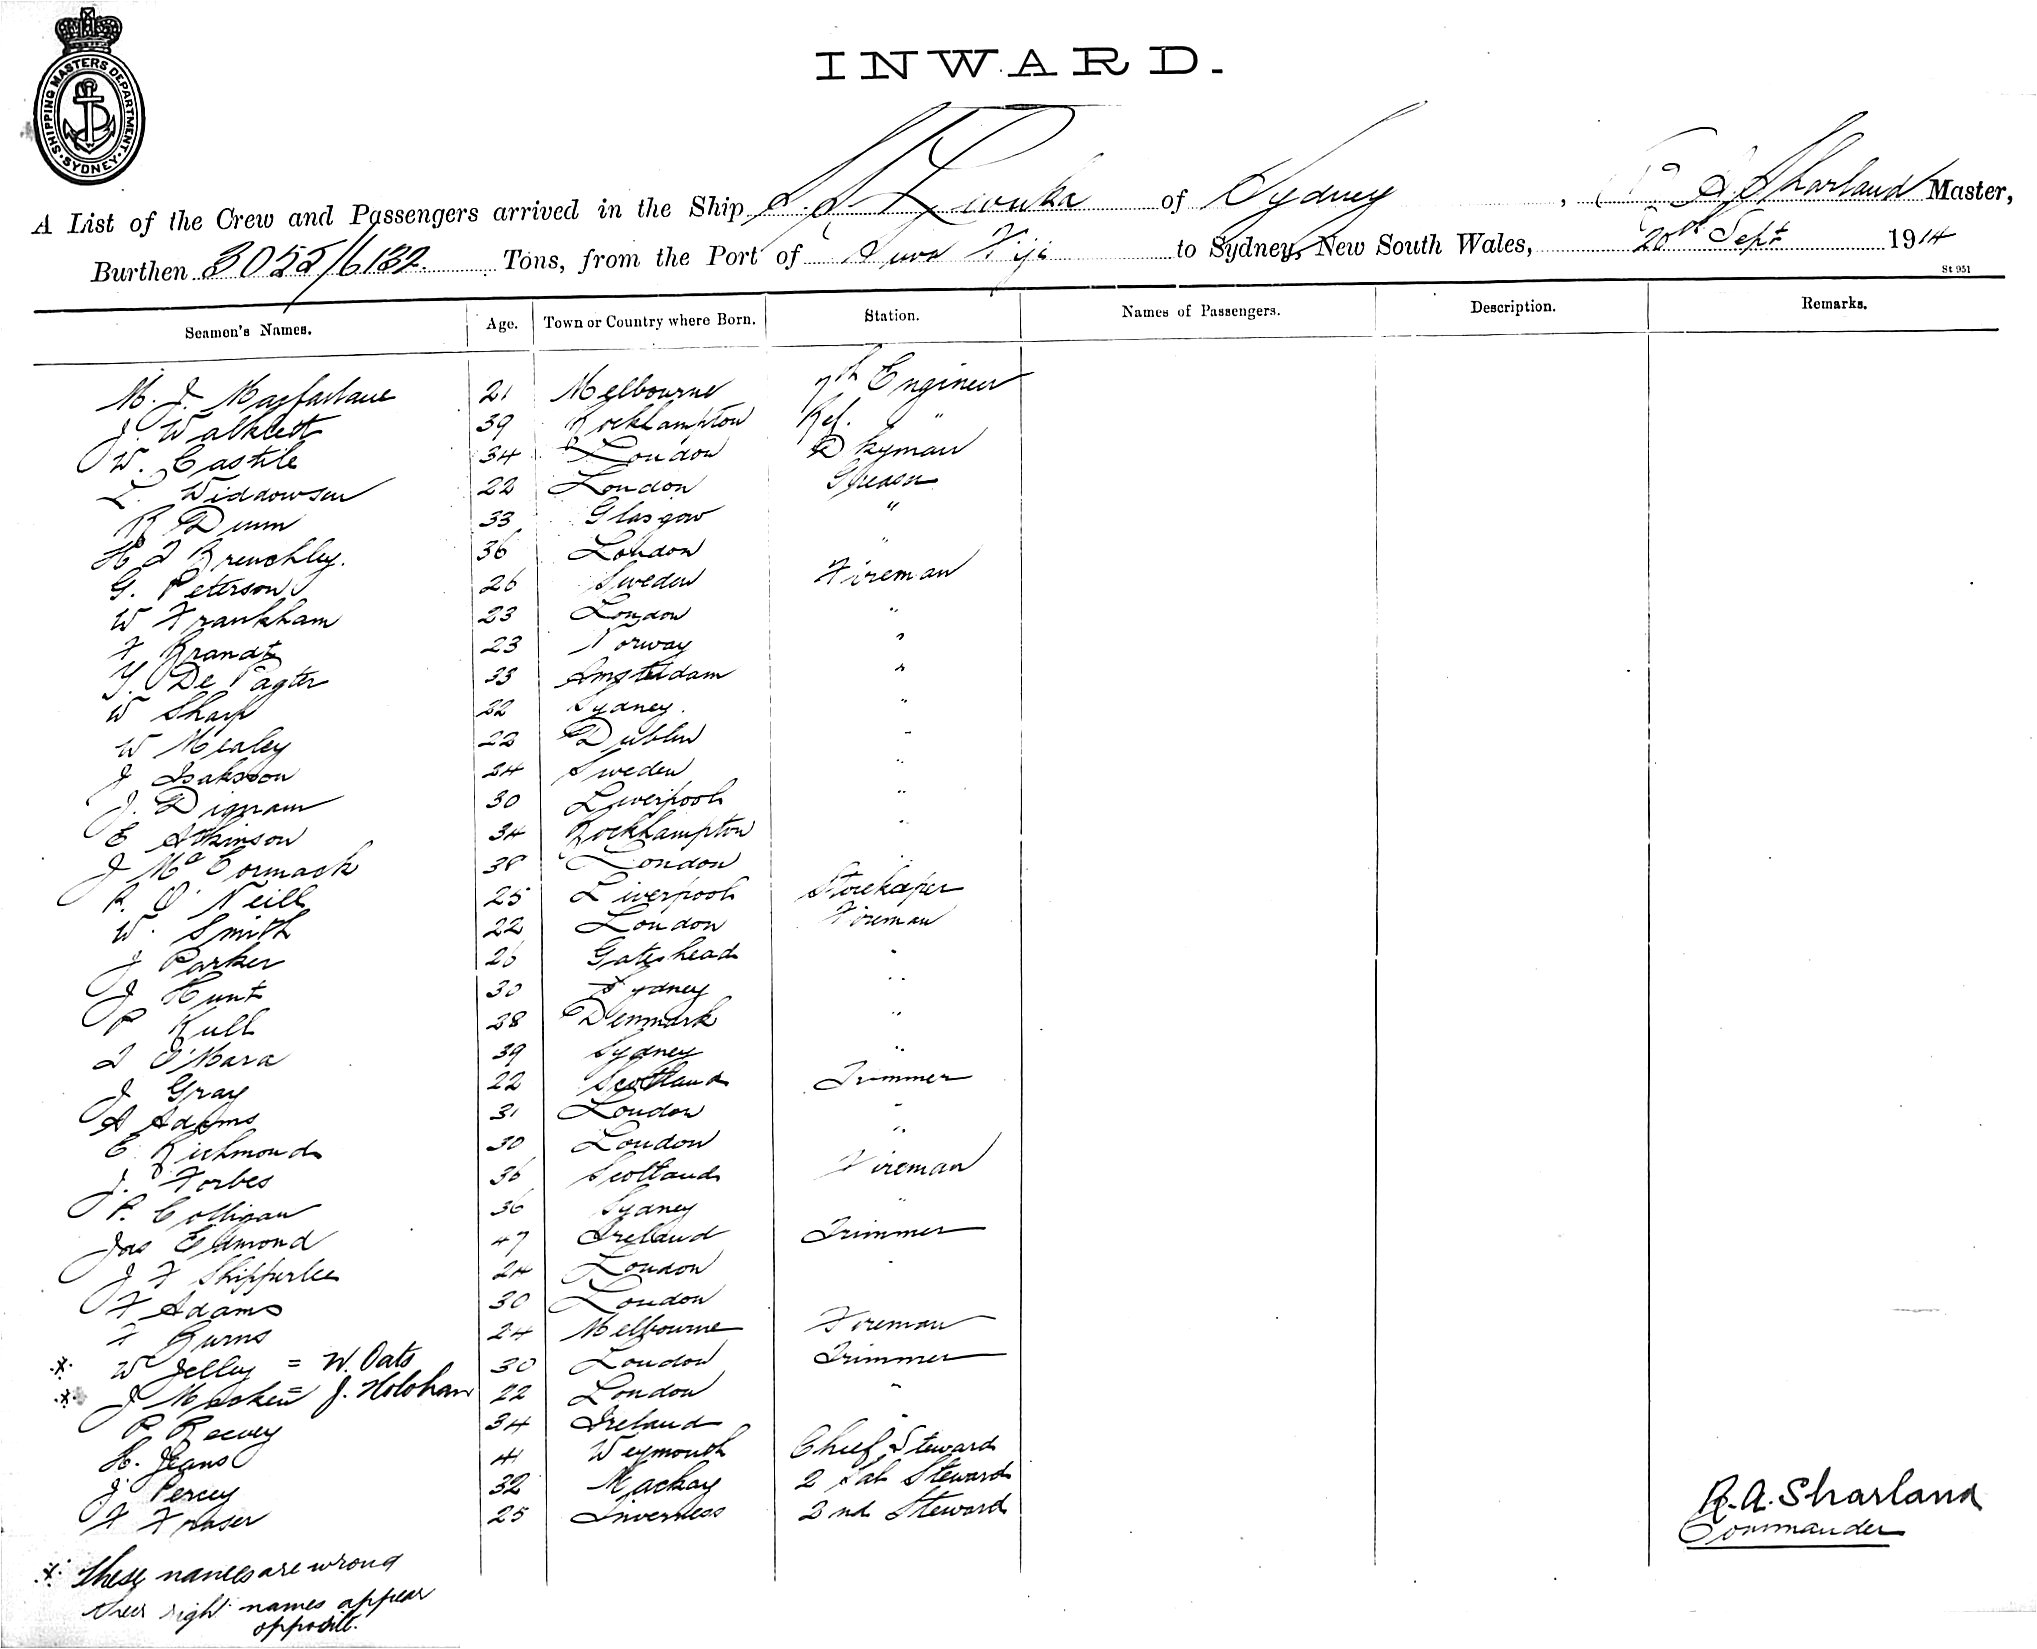 SHIPPING MASTERS DEPARTMENT · SYDNEY ·
INWARD.
A List of the Crew and Passengers arrived in the Ship S.S. Levuka of Sydney, R A Sharland Master,
Burthen 3055/6132. Tons, from the Port of Suva Fiji to Sydney, New South Wales, 20th Sept 1914
St 951
Seamen's Names. Age. Town or Country where Born. Station. Names of Passengers. Description. Remarks.
M. J. Macfarlane 21 Melbourne 7th Engineer
J. Walkest 39 Rockhampton Ref. "
W. Castile 34 London Dkyman
L. Widdowsen 22 London Greaser
R Dunn 33 Glasgow "
H J Brenchley. 36 London "
G. Peterson 26 Sweden Fireman
W Frankham 23 London "
F Brandt 23 Norway "
Y. De Pagter 33 Amsterdam "
W Sharp 22 Sydney. "
W Mealey 22 Dublin "
J Isaksson 24 Sweden "
J. Dignam 30 Liverpool "
E Atkinson 34 Rockhampton "
J McCormack 38 London "
P. O'Neill 25 Liverpool Storekeeper
W. Smith 22 London Fireman
J Parker 26 Gateshead "
J Hunt 30 Sydney "
P Kull 28 Denmark "
J O'Mara 39 Sydney "
J Gray 22 Scotland Trimmer
A Adams 31 London "
E Richmond 30 London "
J. Forbes 36 Scotland Fireman
P. Colligan 36 Sydney "
Jas Edmond 47 Ireland Trimmer
J F Shipperlee 24 London "
F Adams 30 London
F Burns 24 Melbourne Fireman
* W Jelley = W. Oats 30 London Trimmer
* J Macken = J. Holohan 22 London "
P Reevey 34 Ireland "
H. Jeans 41 Weymouth Chief Steward
J Percey 32 Mackay 2 Sal Steward
F Fraser 25 Inverness 2nd Steward
R. A. Sharland
Commander
* These names are wrong
their right names appear
opposite.